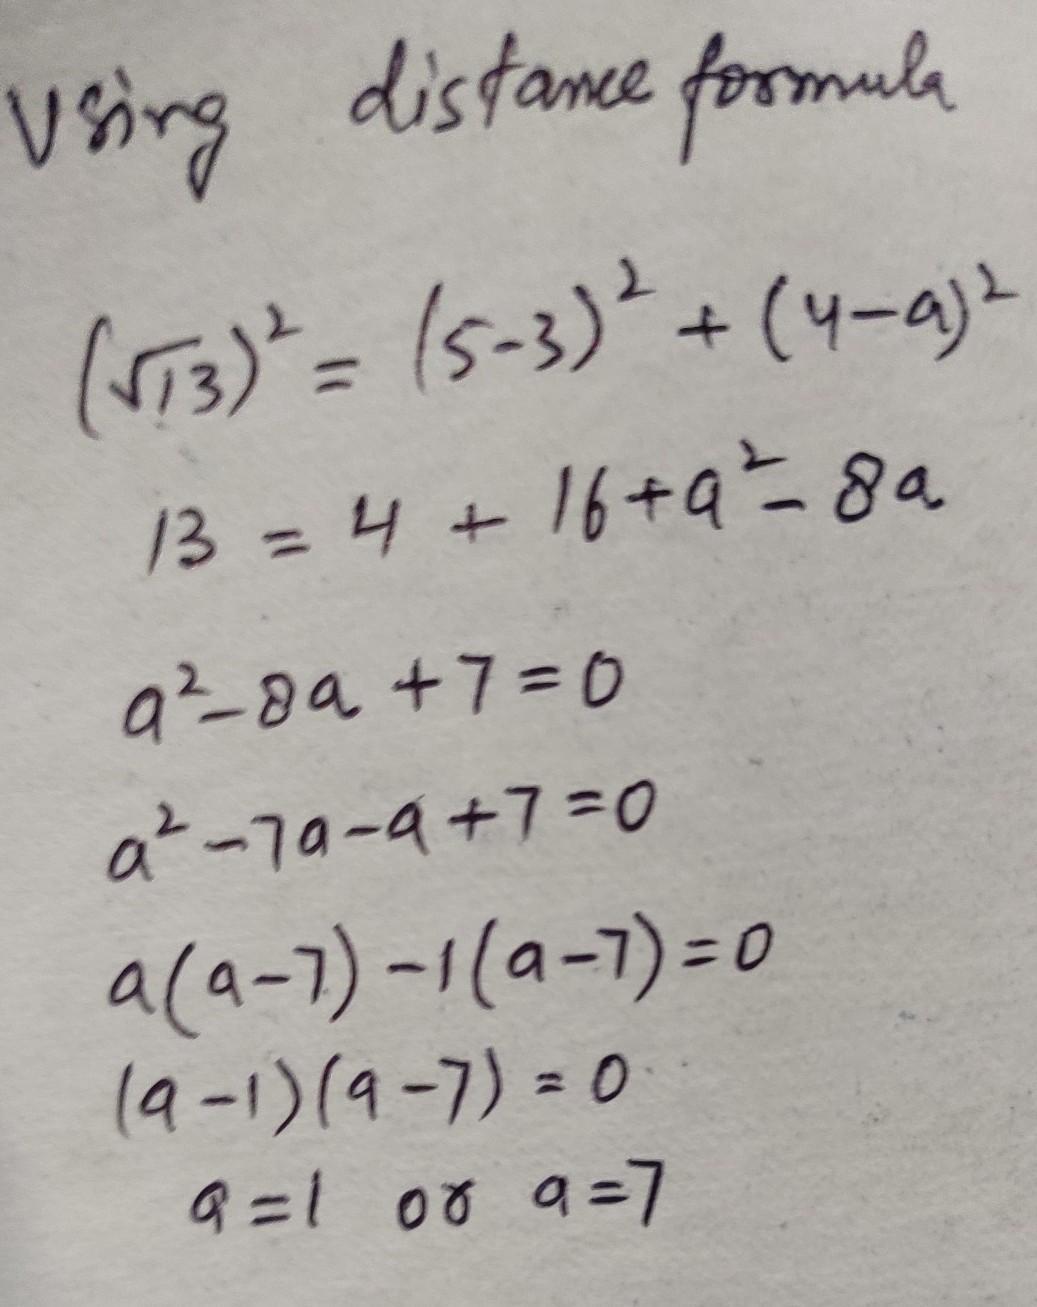 Using distance formula
(√13)² = (5-3)² + (4-a)²
13 = 4 + 16 + a² - 8a
a² - 8a + 7 = 0
a² - 7a - a + 7 = 0
a(a-7) - 1(a-7) = 0
(a-1)(a-7) = 0
a = 1 or a = 7